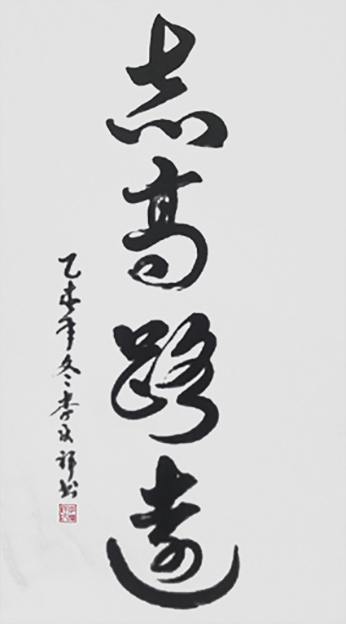 志高路遠
乙未年冬李永祥书